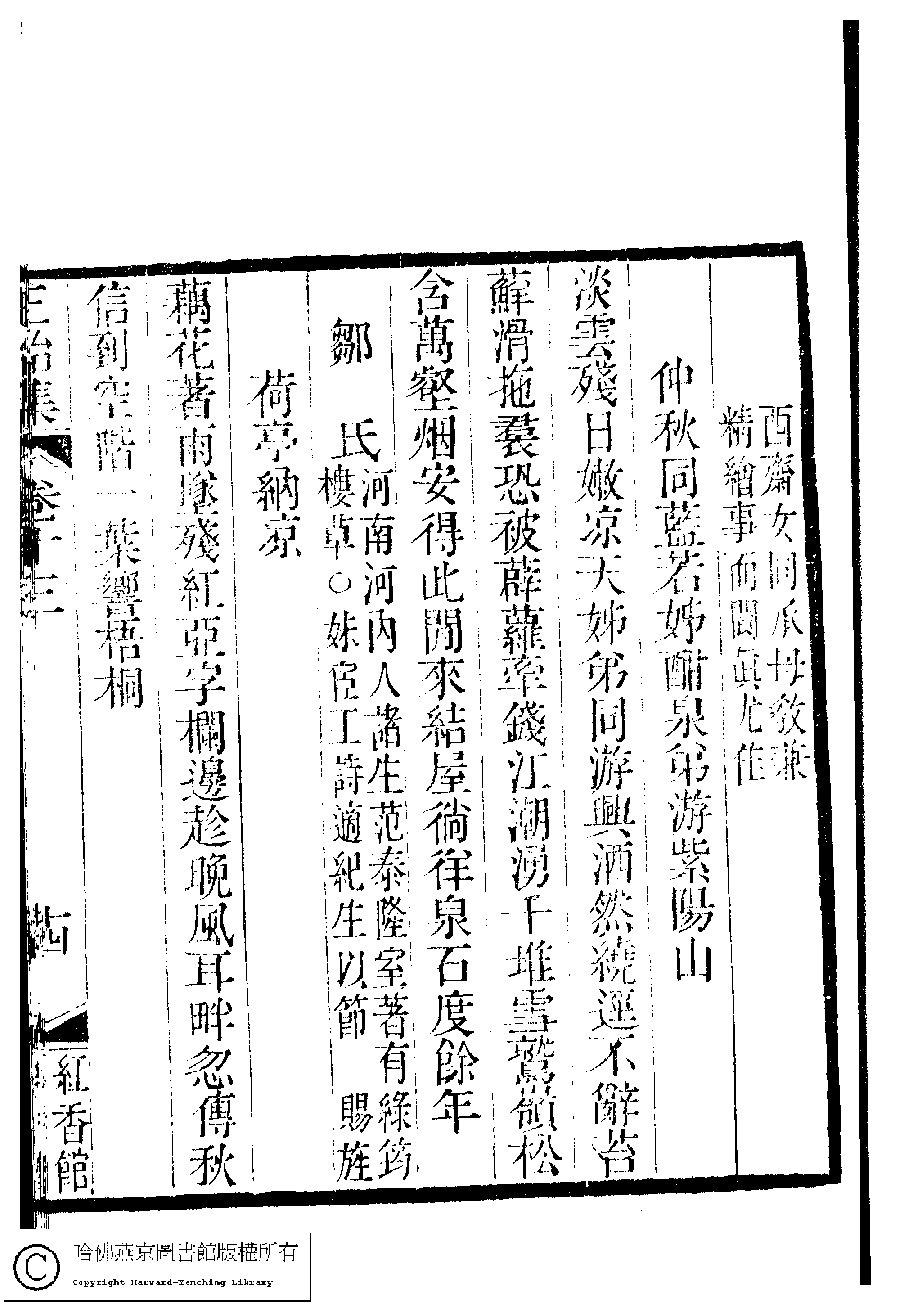 西齋女同承母敎兼
精繪事而閨眞尤佳
仲秋同藍若姊酣泉弟游紫陽山
淡雲殘日嫩凉天姊弟同游興洒然繞逕不辭苔
蘚滑拖裠恐被薜蘿牽錢江潮湧千堆雪鷲嶺松
含萬壑烟安得此閒來結屋徜徉泉石度餘年
鄒氏
河南河內人諸生范泰隆室著有綠筠
樓草○妹宦工詩適紀生以節賜旌
荷亭納凉
藕花著雨墜殘紅亞字欄邊趁晚風耳畔忽傳秋
信到空階一葉響梧桐
正始集
卷十三
十四
紅香館
哈佛燕京圖書館版權所有
Copyright Harvard-Yenching Library